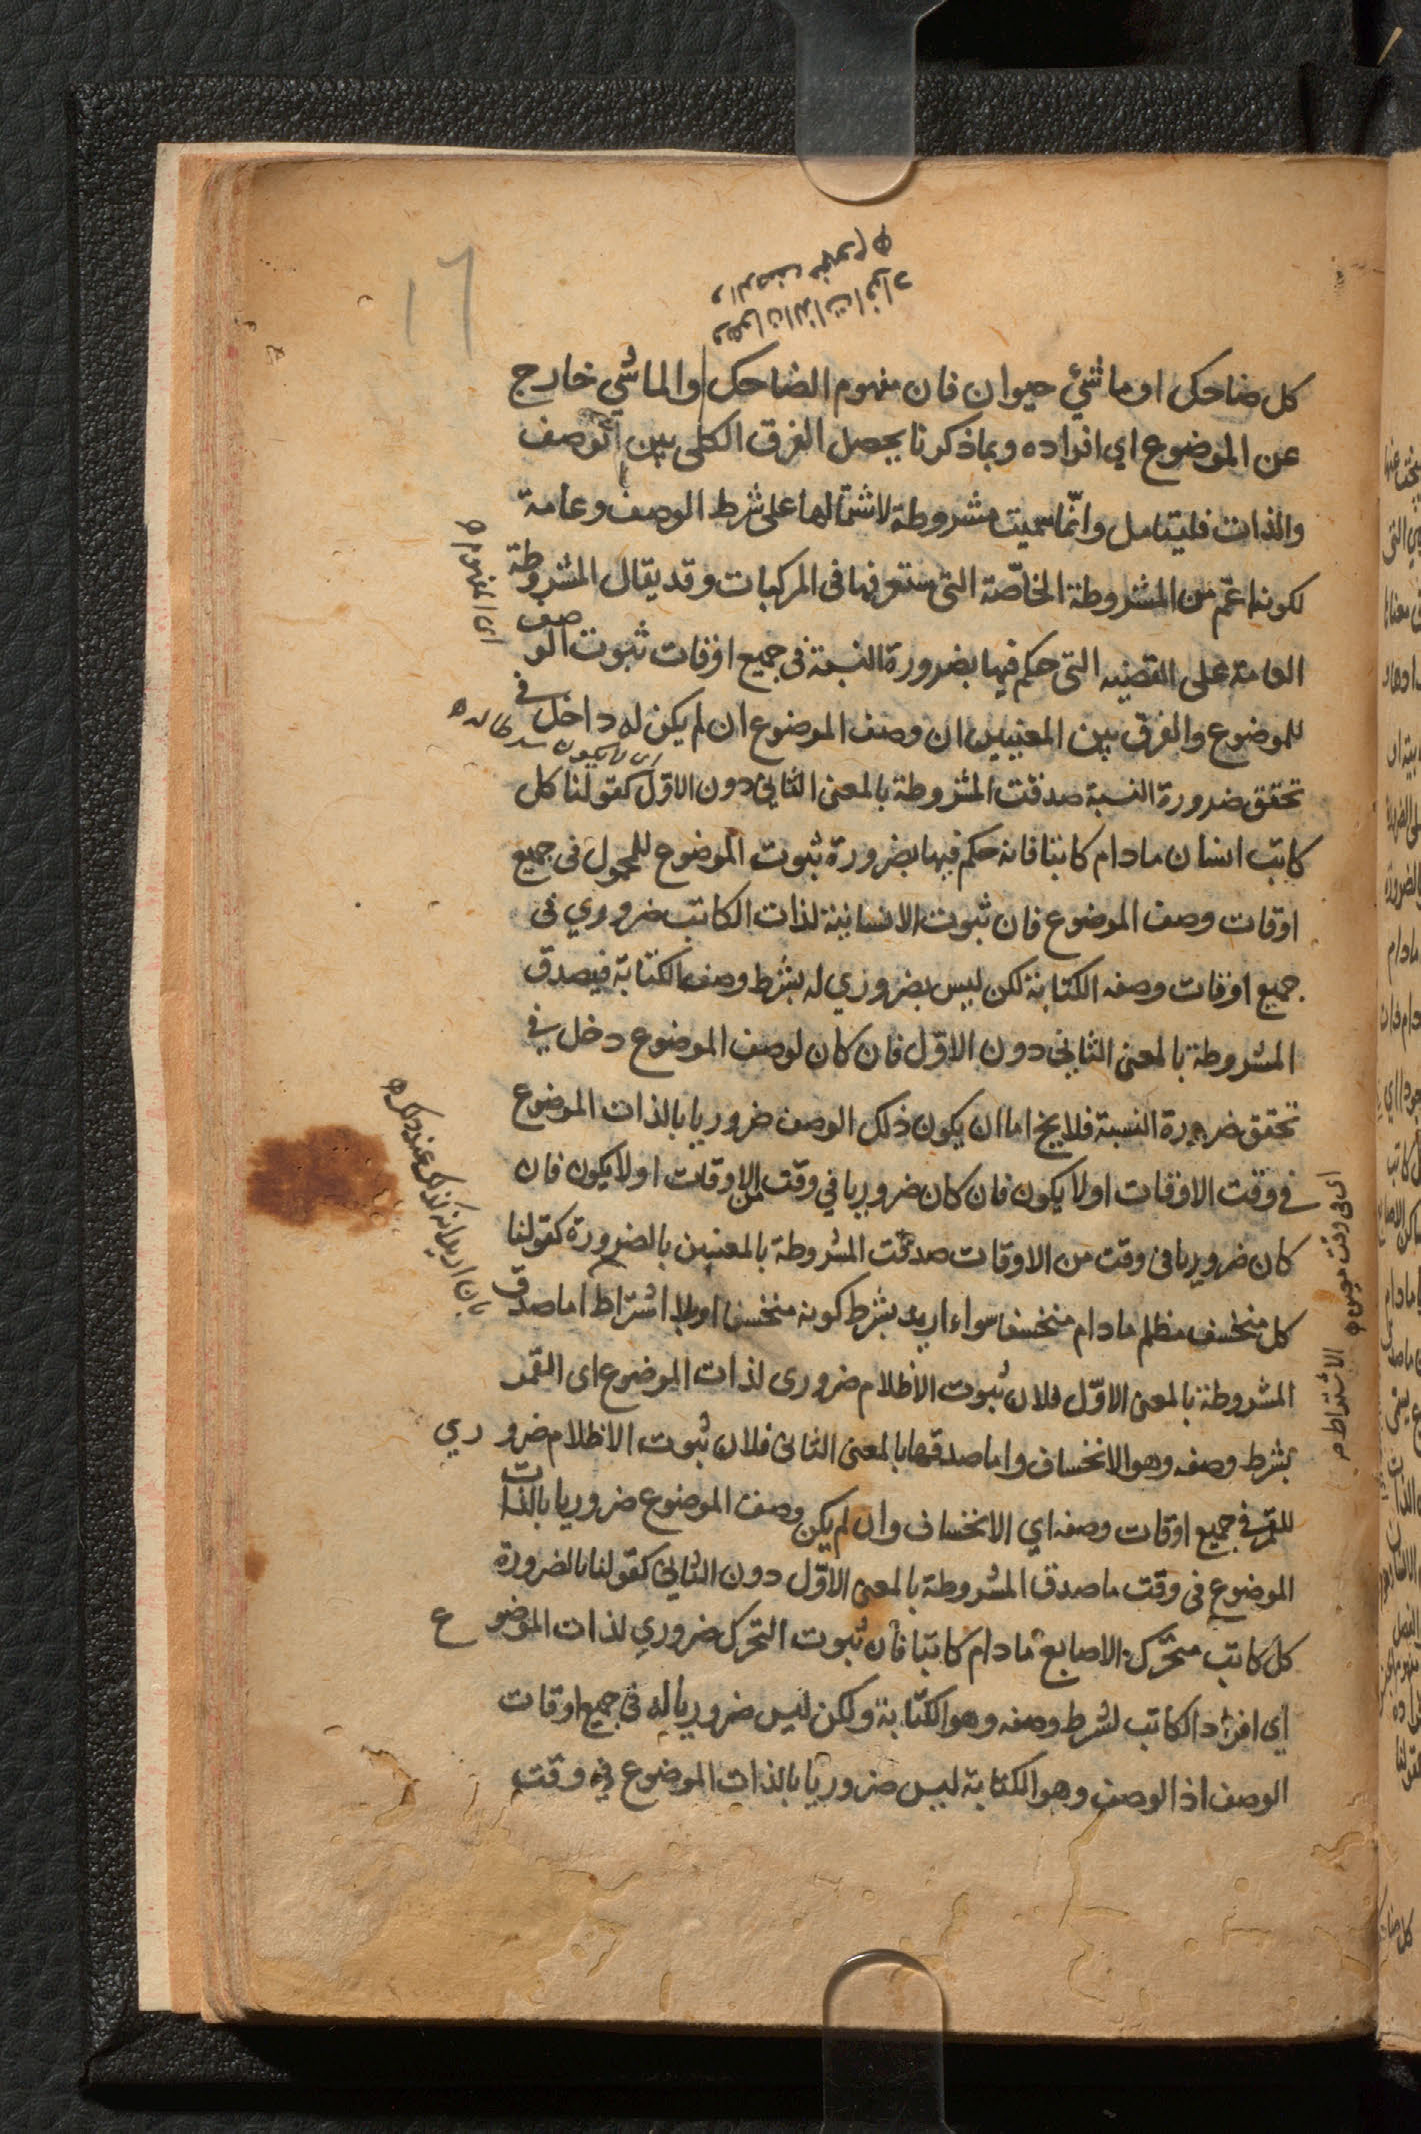 ١٦
كل ضاحك او ماشئ حيوان فان مفهوم الضاحك والماشي خارج
عن الموضوع اي افراده وبما ذكرنا يحصل الفرق الكلى بين الوصف
والذات فليتامل وانّما سميت مشروطة لاشتمالها على شرط الوصف وعامة
لكونها اعمّ من المشروطة الخاصّة التى ستعرفها فى المركبات وقد يقال المشروطة
العامة على القضيه التى حكم فيها بضرورة النسبة فى جميع اوقات ثبوت الوصف
للموضوع والفرق بين المعنيين ان وصف الموضوع ان لم يكن له داخل في
تحقق ضرورة النسبة صدقت المشروطة بالمعنى الثاني دون الاوّل كقولنا كل
كاتب انسان مادام كاتبا فانه حكم فيها بضرورة ثبوت الموضوع للمحمول فى جميع
اوقات وصف الموضوع فان ثبوت الانسانية لذات الكاتب ضروري فى
جميع اوقات وصفه الكتابة لكن ليس بضروري له بشرط وصف الكتابة فيصدق
المشروطة بالمعنى الثاني دون الاوّل فان كان لوصف الموضوع دخل في
تحقق ضرورة النسبة فلا يخ اما ان يكون ذلك الوصف ضروريا بالذات الموضوع
في وقت الاوقات اولا يكون فان كان ضروريا في وقت من الاوقات اولا يكون فان
كان ضروريا فى وقت من الاوقات صدقت المشروطة بالمعنيين بالضرورة كقولنا
كل منخسف مظلم مادام منخسفا سواء اريد بشرط كونه منخسفا او بلا اشتراط اما صدق
المشروطة بالمعنى الاوّل فلان ثبوت الاظلام ضرورى لذات الموضوع اى القمر
بشرط وصفه وهو الانخساف واما صدقها بالمعنى الثانى فلان ثبوت الاظلام ضروري
للقمر فى جميع اوقات وصفه اي الانخساف وان لم يكن وصف الموضوع ضروريا بالذات
الموضوع فى وقت ما صدق المشروطة بالمعنى الاوّل دون الثاني كقولنا بالضرورة
كل كاتب متحرّك الاصابع مادام كاتبا فان ثبوت التحرك ضروري لذات الموضوع
اي افراد الكاتب بشرط وصفه وهو الكتابة ولكن ليس ضروريا له فى جميع اوقات
الوصف اذ الوصف وهو الكتابة ليس ضروريا بالذات الموضوع في وقت
اى المفهوم
اى فى وقت معين
الاشتراط م